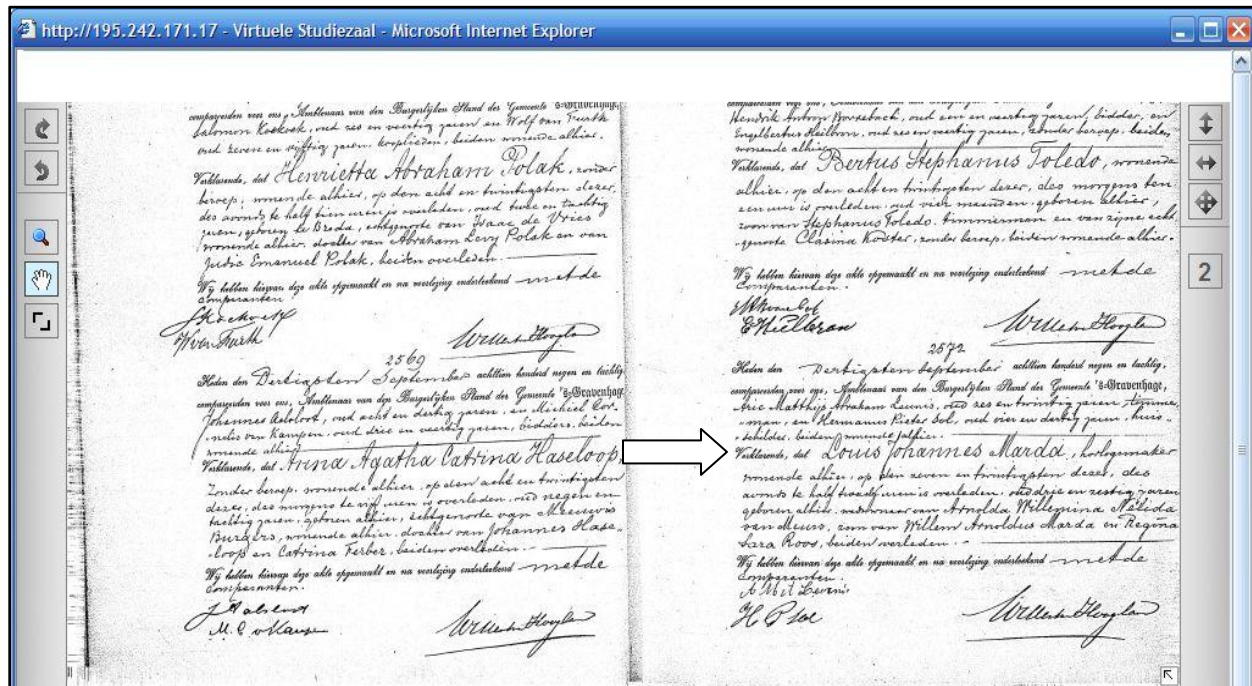 http://195.242.171.17 - Virtuele Studiezaal - Microsoft Internet Explorer
compareerden voor ons, Ambtenaar van den Burgerlijken Stand der Gemeente 's-Gravenhage,
Salomon Koekoek, oud zes en veertig jaren en Wolf van Furth
oud zeven en vijftig jaren, kooplieden, beiden wonende alhier.
Verklarende, dat Henrietta Abraham Polak, zonder
beroep, wonende alhier, op den acht en twintigsten dezer,
des avonds te half tien uren is overleden, oud twee en tachtig
jaren, geboren te Breda, echtgenoote van Isaac de Vries
wonende alhier, dochter van Abraham Levy Polak en van
Judic Emanuel Polak, beiden overleden.
Wij hebben hiervan deze akte opgemaakt en na voorlezing onderteekend met de
Comparanten.
2569
Heden den Dertigsten September achttien honderd negen en tachtig,
compareerden voor ons, Ambtenaar van den Burgerlijken Stand der Gemeente 's-Gravenhage,
Johannes oud acht en dertig jaren, en Michiel Cor-
nelis van Kampen, oud drie en veertig jaren, bidders, beiden
wonende alhier
Verklarende, dat Arina Agatha Catrina Haseloop,
Zonder beroep, wonende alhier, op den acht en twintigsten
dezer, des morgens te vijf uren is overleden, oud negen en
tachtig jaren, geboren alhier, echtgenoote van Meeuwis
Burgers, wonende alhier, dochter van Johannes Hase-
loop en Catrina Ferber, beiden overleden.
Wij hebben hiervan deze akte opgemaakt en na voorlezing onderteekend met de
Comparanten.
Hendrik Antoon oud een en veertig jaren, bidder, en
Engelbertus Heilbron, oud zes en veertig jaren, zonder beroep, beiden
wonende alhier
Verklarende, dat Bertus Stephanus Toledo, wonende
alhier, op den acht en twintigsten dezer, des morgens ten
een uur is overleden, oud vier maanden, geboren alhier,
zoon van Stephanus Toledo, timmerman en van zijne echt-
genoote Clasina Koster, zonder beroep, beiden wonende alhier.
Wij hebben hiervan deze akte opgemaakt en na voorlezing onderteekend met de
Comparanten.
2572
Heden den Dertigsten September achttien honderd negen en tachtig,
compareerden voor ons, Ambtenaar van den Burgerlijken Stand der Gemeente 's-Gravenhage,
Arie Matthijs Abraham Leunis, oud zes en twintig jaren, timmer-
man, en Hermanus Pieter Sol, oud vier en dertig jaren, huis-
schilder, beiden wonende alhier.
Verklarende, dat Louis Johannes Marda, horlogemaker
wonende alhier, op den zeven en twintigsten dezer, des
avonds te half twaalf uren is overleden, oud drie en zestig jaren
geboren alhier, weduwnaar van Arnolda Willemina Nelida
van Meurs, zoon van Willem Arnoldus Marda en Regina
Sara Roos, beiden overleden.
Wij hebben hiervan deze akte opgemaakt en na voorlezing onderteekend met de
Comparanten.
2